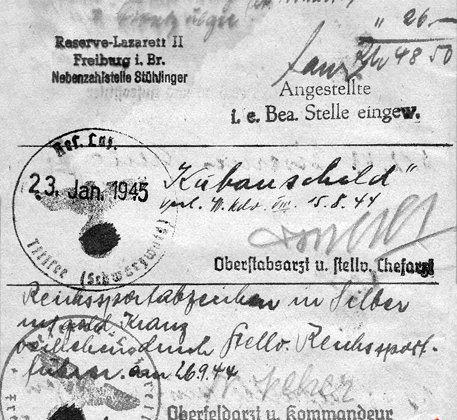 " 26.-
Reserve-Lazarett II
Freiburg i. Br.
Nebenzahlstelle Stühlinger
48 50
Angestellte
i. e. Bea. Stelle eingew.
Res. Laz.
Titisee (Schwarzwald)
23. Jan. 1945
„Kubanschild"
verl. W. Kdo. VII 15.8.44
Oberstabsarzt u. stellv. Chefarzt
Reichssportabzeichen in Silber
mit gold. Kranz
verliehen durch Stellv. Reichssport-
führer. am 26.9.44
Oberfeldarzt u. Kommandeur